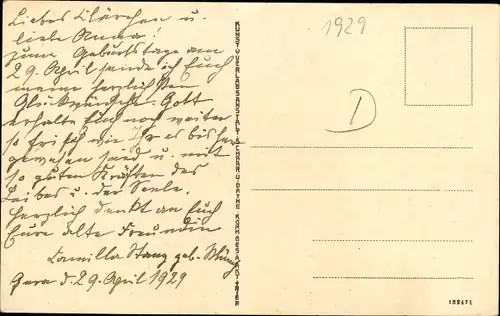 Liebes Klärchen u.
liebe Anna!
zum Geburtstage am
29. April sende ich Euch
meine herzlichsten
Glückwünsche. Gott
erhalte Euch noch weiter
so frisch wie Ihr es bisher
gewesen seid u. mit
so guten Kräften des
Leibes u. der Seele.
Herzlich denkt an Euch
Eure alte Freundin
Camilla Stanz geb. Münch
Gera d. 29. April 1929
1929
D
KUNST-U-VERLAGSANSTALT
TRIER